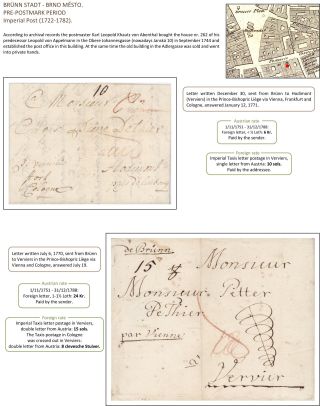 BRÜNN STADT - BRNO MĚSTO.
PRE-POSTMARK PERIOD
Imperial Post (1722-1782).
According to archival records the postmaster Karl Leopold Khautz von Abenthal bought the house nr. 262 of his
predecessor Leopold von Appelmann in the Obere Johannesgasse (nowadays Janská 10) in September 1744 and
established the post office in this building. At the same time the old building in the Adlergasse was sold and went
into private hands.
Letter written December 30, sent from Brünn to Hodimont
(Verviers) in the Prince-Bishopric Liège via Vienna, Frankfurt and
Cologne, answered January 12, 1771.
Austrian rate
1/11/1751 - 31/12/1788:
Foreign letter, <½ Loth: 6 Kr.
Paid by the sender.
Foreign rate
Imperial Taxis letter postage in Verviers,
single letter from Austria: 10 sols.
Paid by the addressee.
10
A Monsieur
Cologne
Letter written July 6, 1770, sent from Brünn
to Verviers in the Prince-Bishopric Liège via
Vienna and Cologne, answered July 19.
Austrian rate
1/11/1751 - 31/12/1788:
Foreign letter, 1-1½ Loth: 24 Kr.
Paid by the sender.
Foreign rate
Imperial Taxis letter postage in Verviers,
double letter from Austria: 15 sols.
The Taxis postage in Cologne
was crossed out in Verviers:
double letter from Austria: 8 clevesche Stuiver.
de Brünn
15
Monsieur
Monsieur Petter
Pethier
par Vienne
Vervier